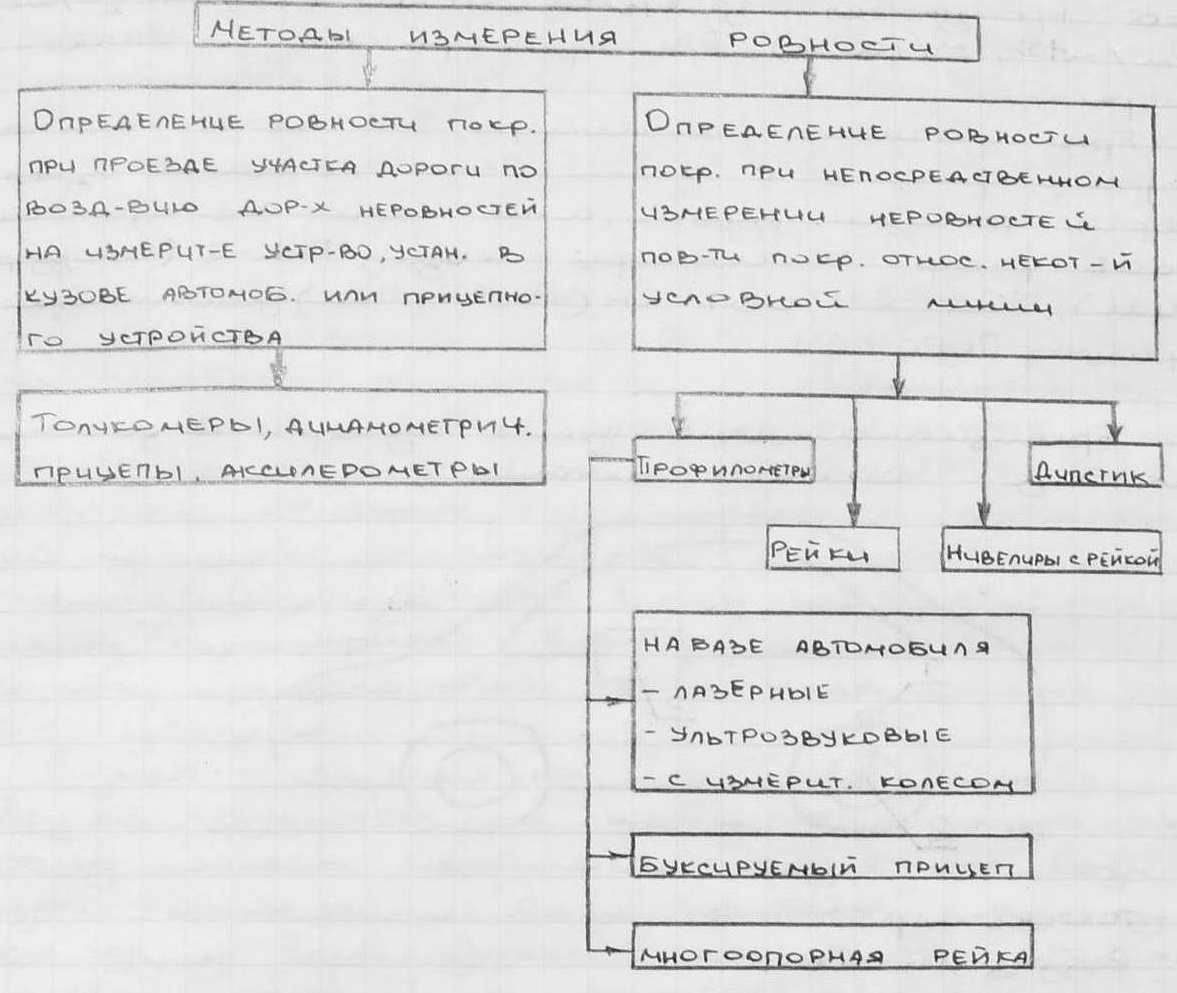 МЕТОДЫ ИЗМЕРЕНИЯ РОВНОСТИ
ОПРЕДЕЛЕНИЕ РОВНОСТИ ПОКР.
ПРИ ПРОЕЗДЕ УЧАСТКА ДОРОГИ ПО
ВОЗД-ВИЮ ДОР-Х НЕРОВНОСТЕЙ
НА ИЗМЕРИТ-Е УСТР-ВО, УСТАН. В
КУЗОВЕ АВТОМОБ. ИЛИ ПРИЦЕПНО-
ГО УСТРОЙСТВА
ТОЛЧКОМЕРЫ, ДИНАМОМЕТРИЧ.
ПРИЦЕПЫ, АКСИЛЕРОМЕТРЫ
ОПРЕДЕЛЕНИЕ РОВНОСТИ
ПОКР. ПРИ НЕПОСРЕДСТВЕННОМ
ИЗМЕРЕНИИ НЕРОВНОСТЕЙ
ПОВ-ТИ ПОКР. ОТНОС. НЕКОТ-Й
УСЛОВНОЙ ЛИНИИ
ПРОФИЛОМЕТРЫ
ДИПСТИК
РЕЙКИ
НИВЕЛИРЫ С РЕЙКОЙ
НА БАЗЕ АВТОМОБИЛЯ
- ЛАЗЕРНЫЕ
- УЛЬТРОЗВУКОВЫЕ
- С ИЗМЕРИТ. КОЛЕСОМ
БУКСИРУЕМЫЙ ПРИЦЕП
МНОГООПОРНАЯ РЕЙКА